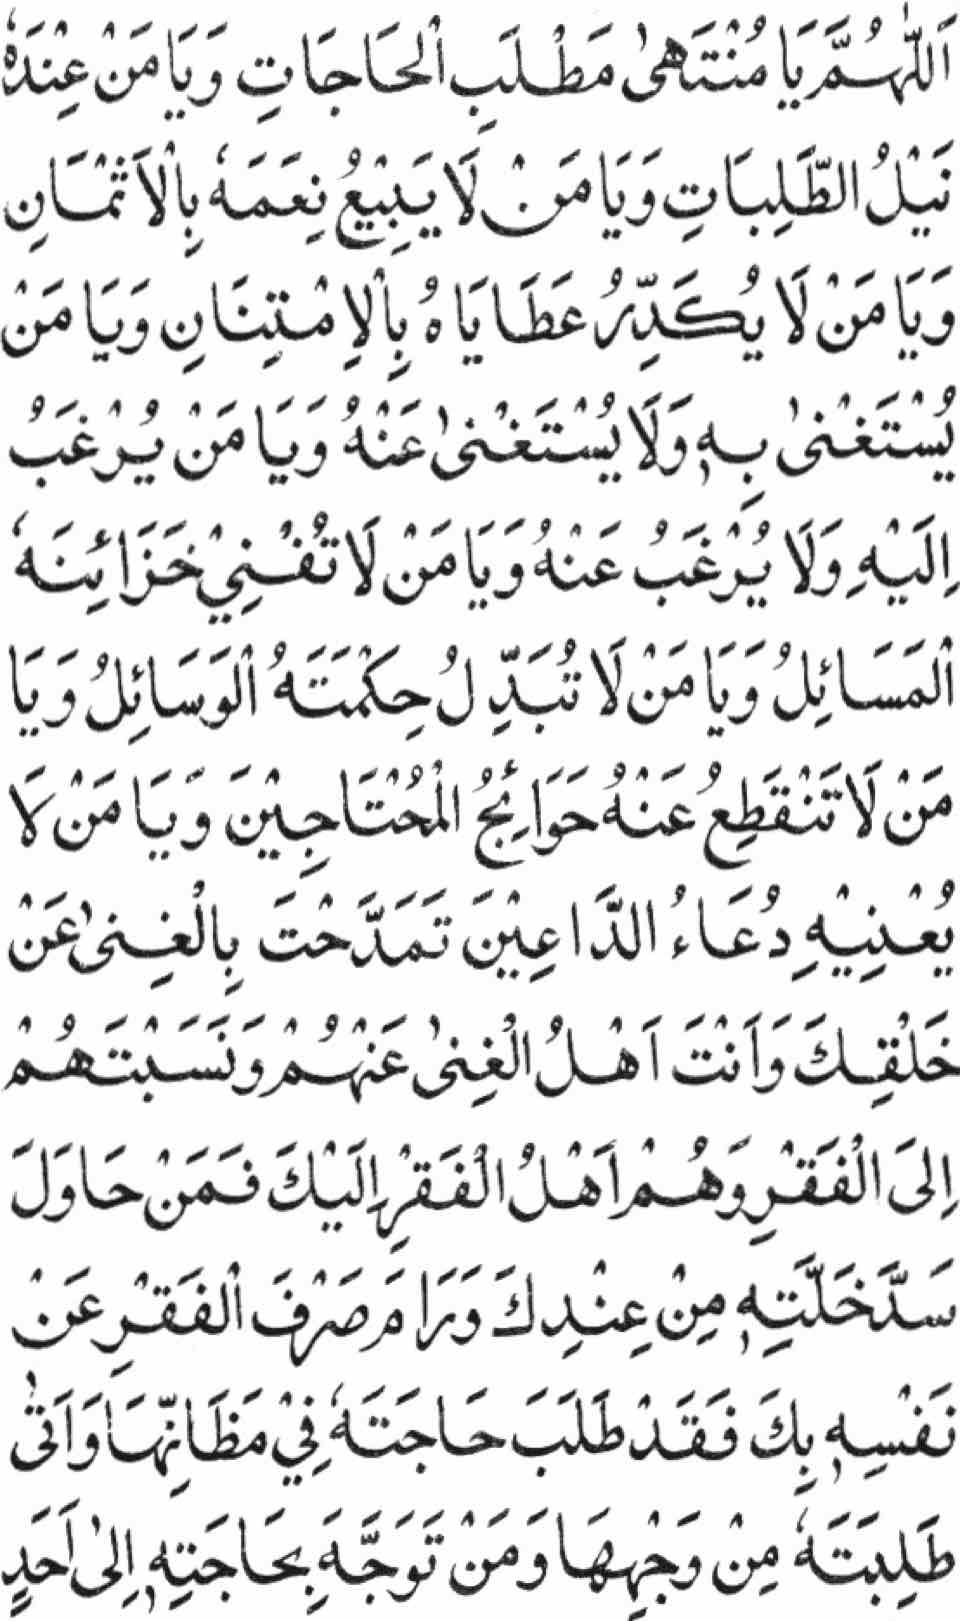 اَللّٰهُمَّ يَا مُنْتَهٰى مَطْلَبِ الْحَاجَاتِ وَيَا مَنْ عِنْدَهٗ
نَيْلُ الطَّلِبَاتِ وَيَا مَنْ لَا يَبِيْعُ نِعَمَهٗ بِالْاَثْمَانِ
وَيَا مَنْ لَا يُكَدِّرُ عَطَايَاهُ بِالْاِمْتِنَانِ وَيَا مَنْ
يُسْتَغْنٰى بِهٖ وَلَا يُسْتَغْنٰى عَنْهُ وَيَا مَنْ يُرْغَبُ
اِلَيْهِ وَلَا يُرْغَبُ عَنْهُ وَيَا مَنْ لَا تُفْنِيْ خَزَائِنَهٗ
الْمَسَائِلُ وَيَا مَنْ لَا تُبَدِّلُ حِكْمَتَهُ الْوَسَائِلُ وَيَا
مَنْ لَا تَنْقَطِعُ عَنْهُ حَوَائِجُ الْمُحْتَاجِيْنَ وَيَا مَنْ لَا
يُعْنِيْهِ دُعَاءُ الدَّاعِيْنَ تَمَدَّحْتَ بِالْغِنٰى عَنْ
خَلْقِكَ وَاَنْتَ اَهْلُ الْغِنٰى عَنْهُمْ وَنَسَبْتَهُمْ
اِلَى الْفَقْرِ وَهُمْ اَهْلُ الْفَقْرِ اِلَيْكَ فَمَنْ حَاوَلَ
سَدَّ خَلَّتِهٖ مِنْ عِنْدِكَ وَرَامَ صَرْفَ الْفَقْرِ عَنْ
نَفْسِهٖ بِكَ فَقَدْ طَلَبَ حَاجَتَهٗ فِيْ مَظَانِّهَا وَاَتٰى
طَلِبَتَهٗ مِنْ وَجْهِهَا وَمَنْ تَوَجَّهَ بِحَاجَتِهٖ اِلٰى اَحَدٍ